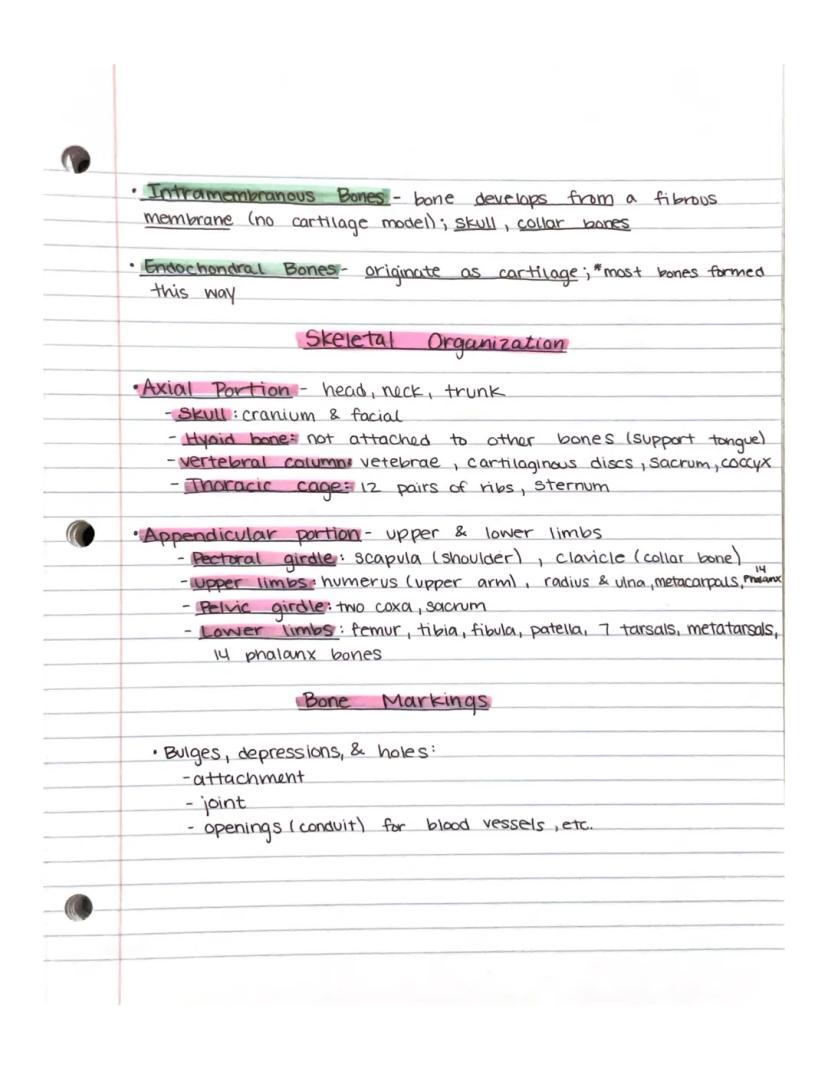 • Intramembranous Bones - bone develops from a fibrous
membrane (no cartilage model); skull, collar bones
• Endochondral Bones - originate as cartilage; *most bones formed
this way
Skeletal Organization
• Axial Portion - head, neck, trunk
- Skull: cranium & facial
- Hyoid bone: not attached to other bones (support tongue)
- vertebral column: vetebrae, cartilaginous discs, sacrum, coccyx
- Thoracic cage: 12 pairs of ribs, sternum
• Appendicular portion - upper & lower limbs
- Pectoral girdle: scapula (shoulder), clavicle (collar bone)
- upper limbs: humerus (upper arm), radius & ulna, metacarpals, 14 phalanx
- Pelvic girdle: two coxa, sacrum
- Lower limbs: femur, tibia, fibula, patella, 7 tarsals, metatarsals,
14 phalanx bones
Bone Markings
• Bulges, depressions, & holes:
- attachment
- joint
- openings (conduit) for blood vessels, etc.